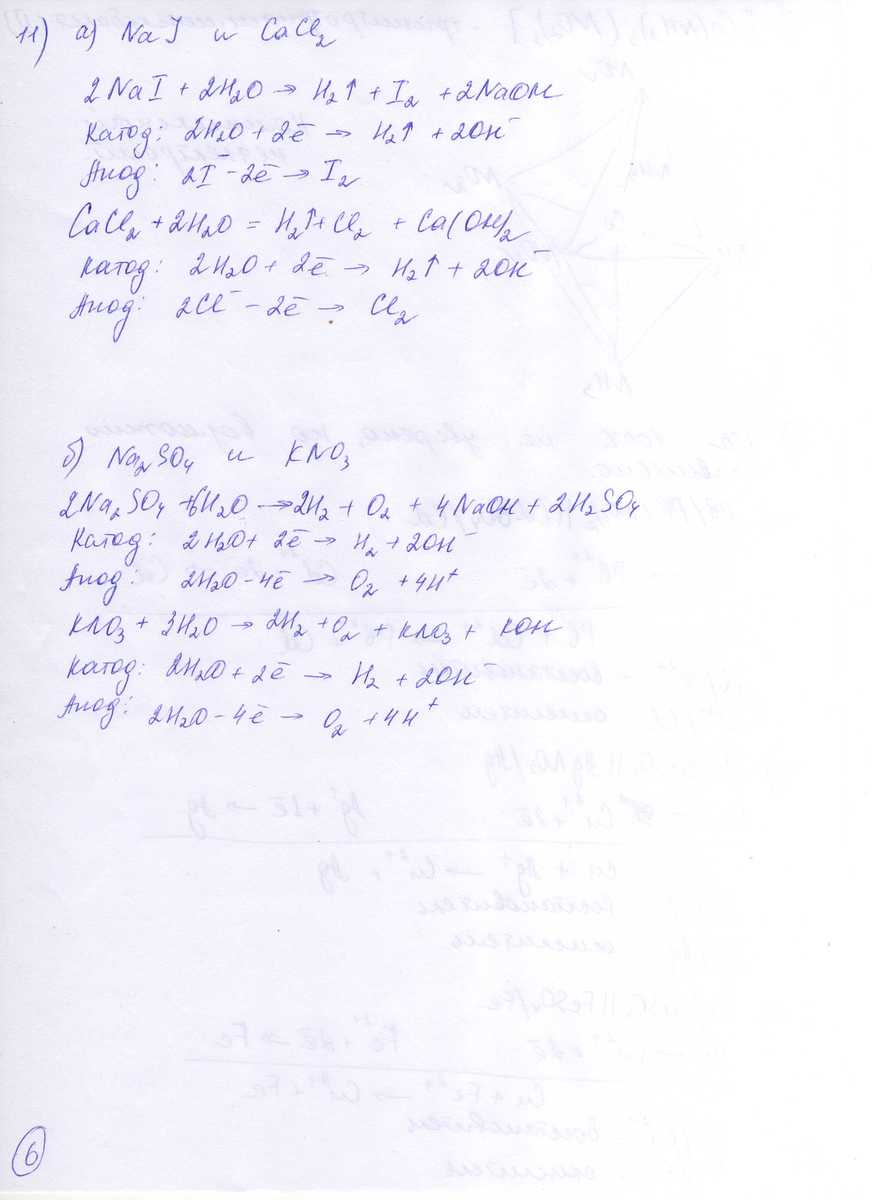 11) а) NaJ и CaCl₂
2NaI + 2H₂O → H₂↑ + I₂ + 2NaOH
Катод: 2H₂O + 2ē → H₂↑ + 2OH⁻
Анод: 2I⁻ - 2ē → I₂
CaCl₂ + 2H₂O = H₂↑ + Cl₂ + Ca(OH)₂
Катод: 2H₂O + 2ē → H₂↑ + 2OH⁻
Анод: 2Cl⁻ - 2ē → Cl₂
б) Na₂SO₄ и KNO₃
2Na₂SO₄ + 6H₂O → 2H₂ + O₂ + 4NaOH + 2H₂SO₄
Катод: 2H₂O + 2ē → H₂ + 2OH⁻
Анод: 2H₂O - 4ē → O₂ + 4H⁺
KNO₃ + 3H₂O → 2H₂ + O₂ + KNO₃ + KOH
Катод: 2H₂O + 2ē → H₂ + 2OH⁻
Анод: 2H₂O - 4ē → O₂ + 4H⁺
6